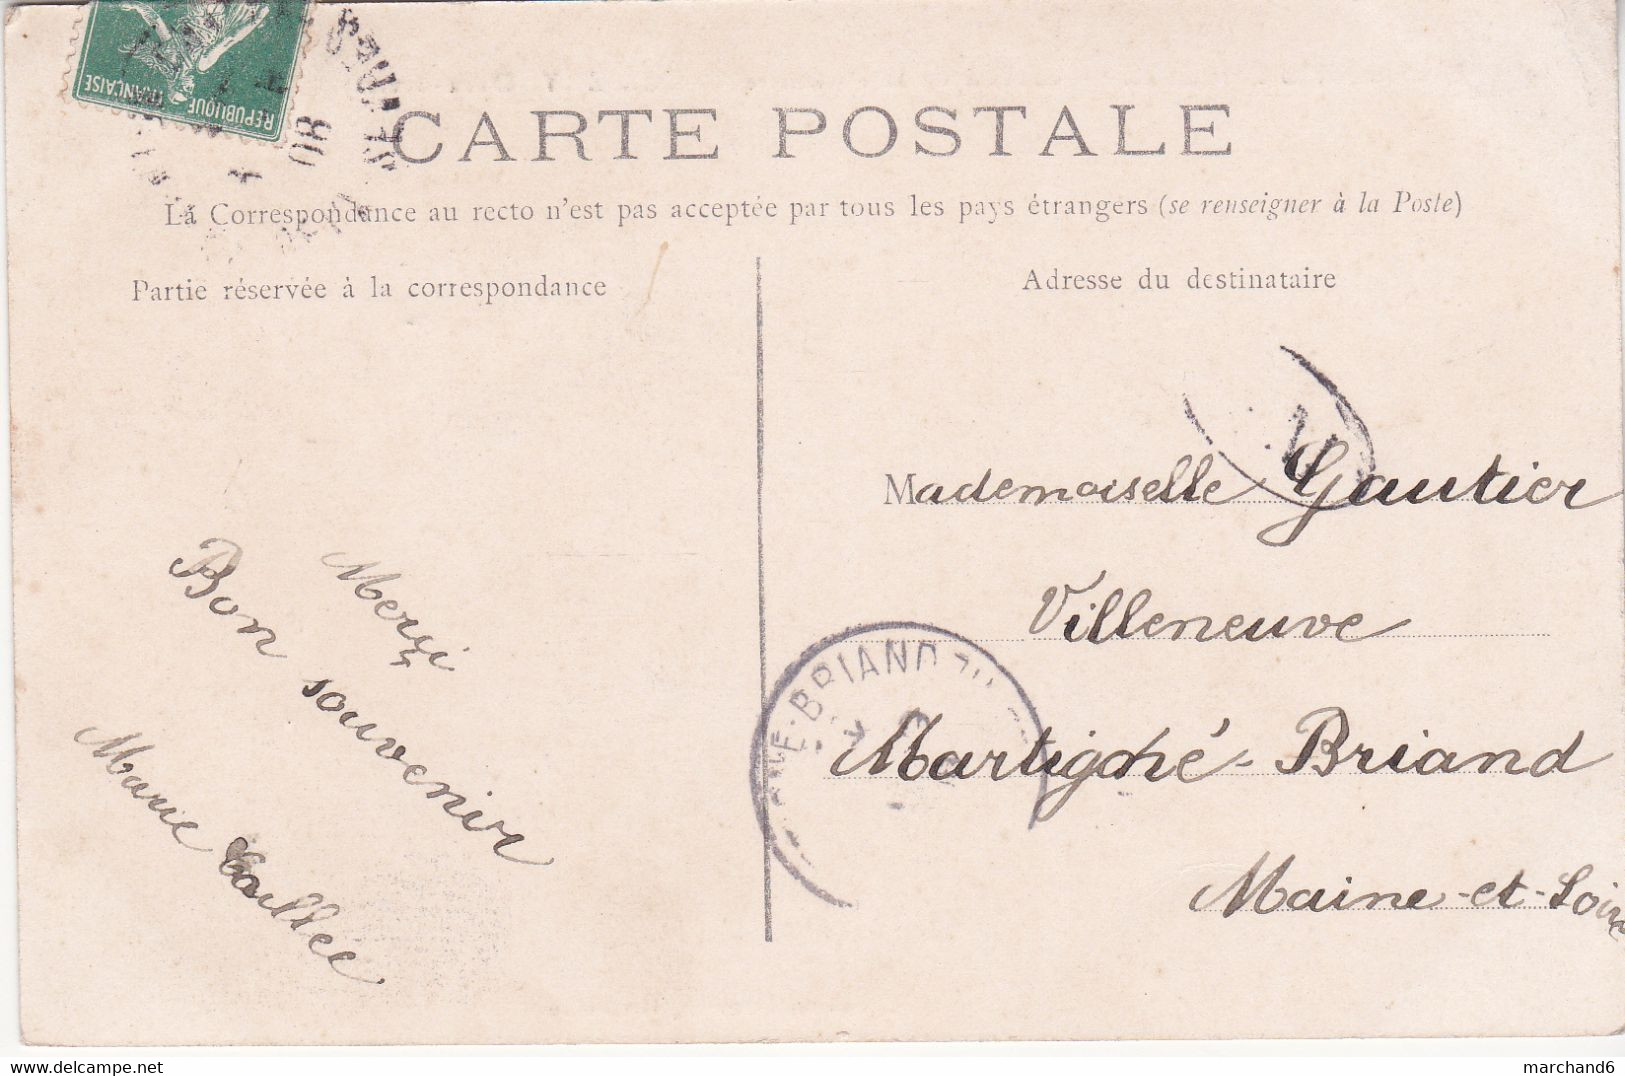 REPUBLIQUE FRANÇAISE
08
CARTE POSTALE
La Correspondance au recto n'est pas acceptée par tous les pays étrangers (se renseigner à la Poste)
Partie réservée à la correspondance
Merçi
Bon souvenir
Marie
Adresse du destinataire
Mademoiselle Gautier
Villeneuve
Martigné-Briand
Maine-et-Loire
E-BRIAND
www.delcampe.net
marchand6